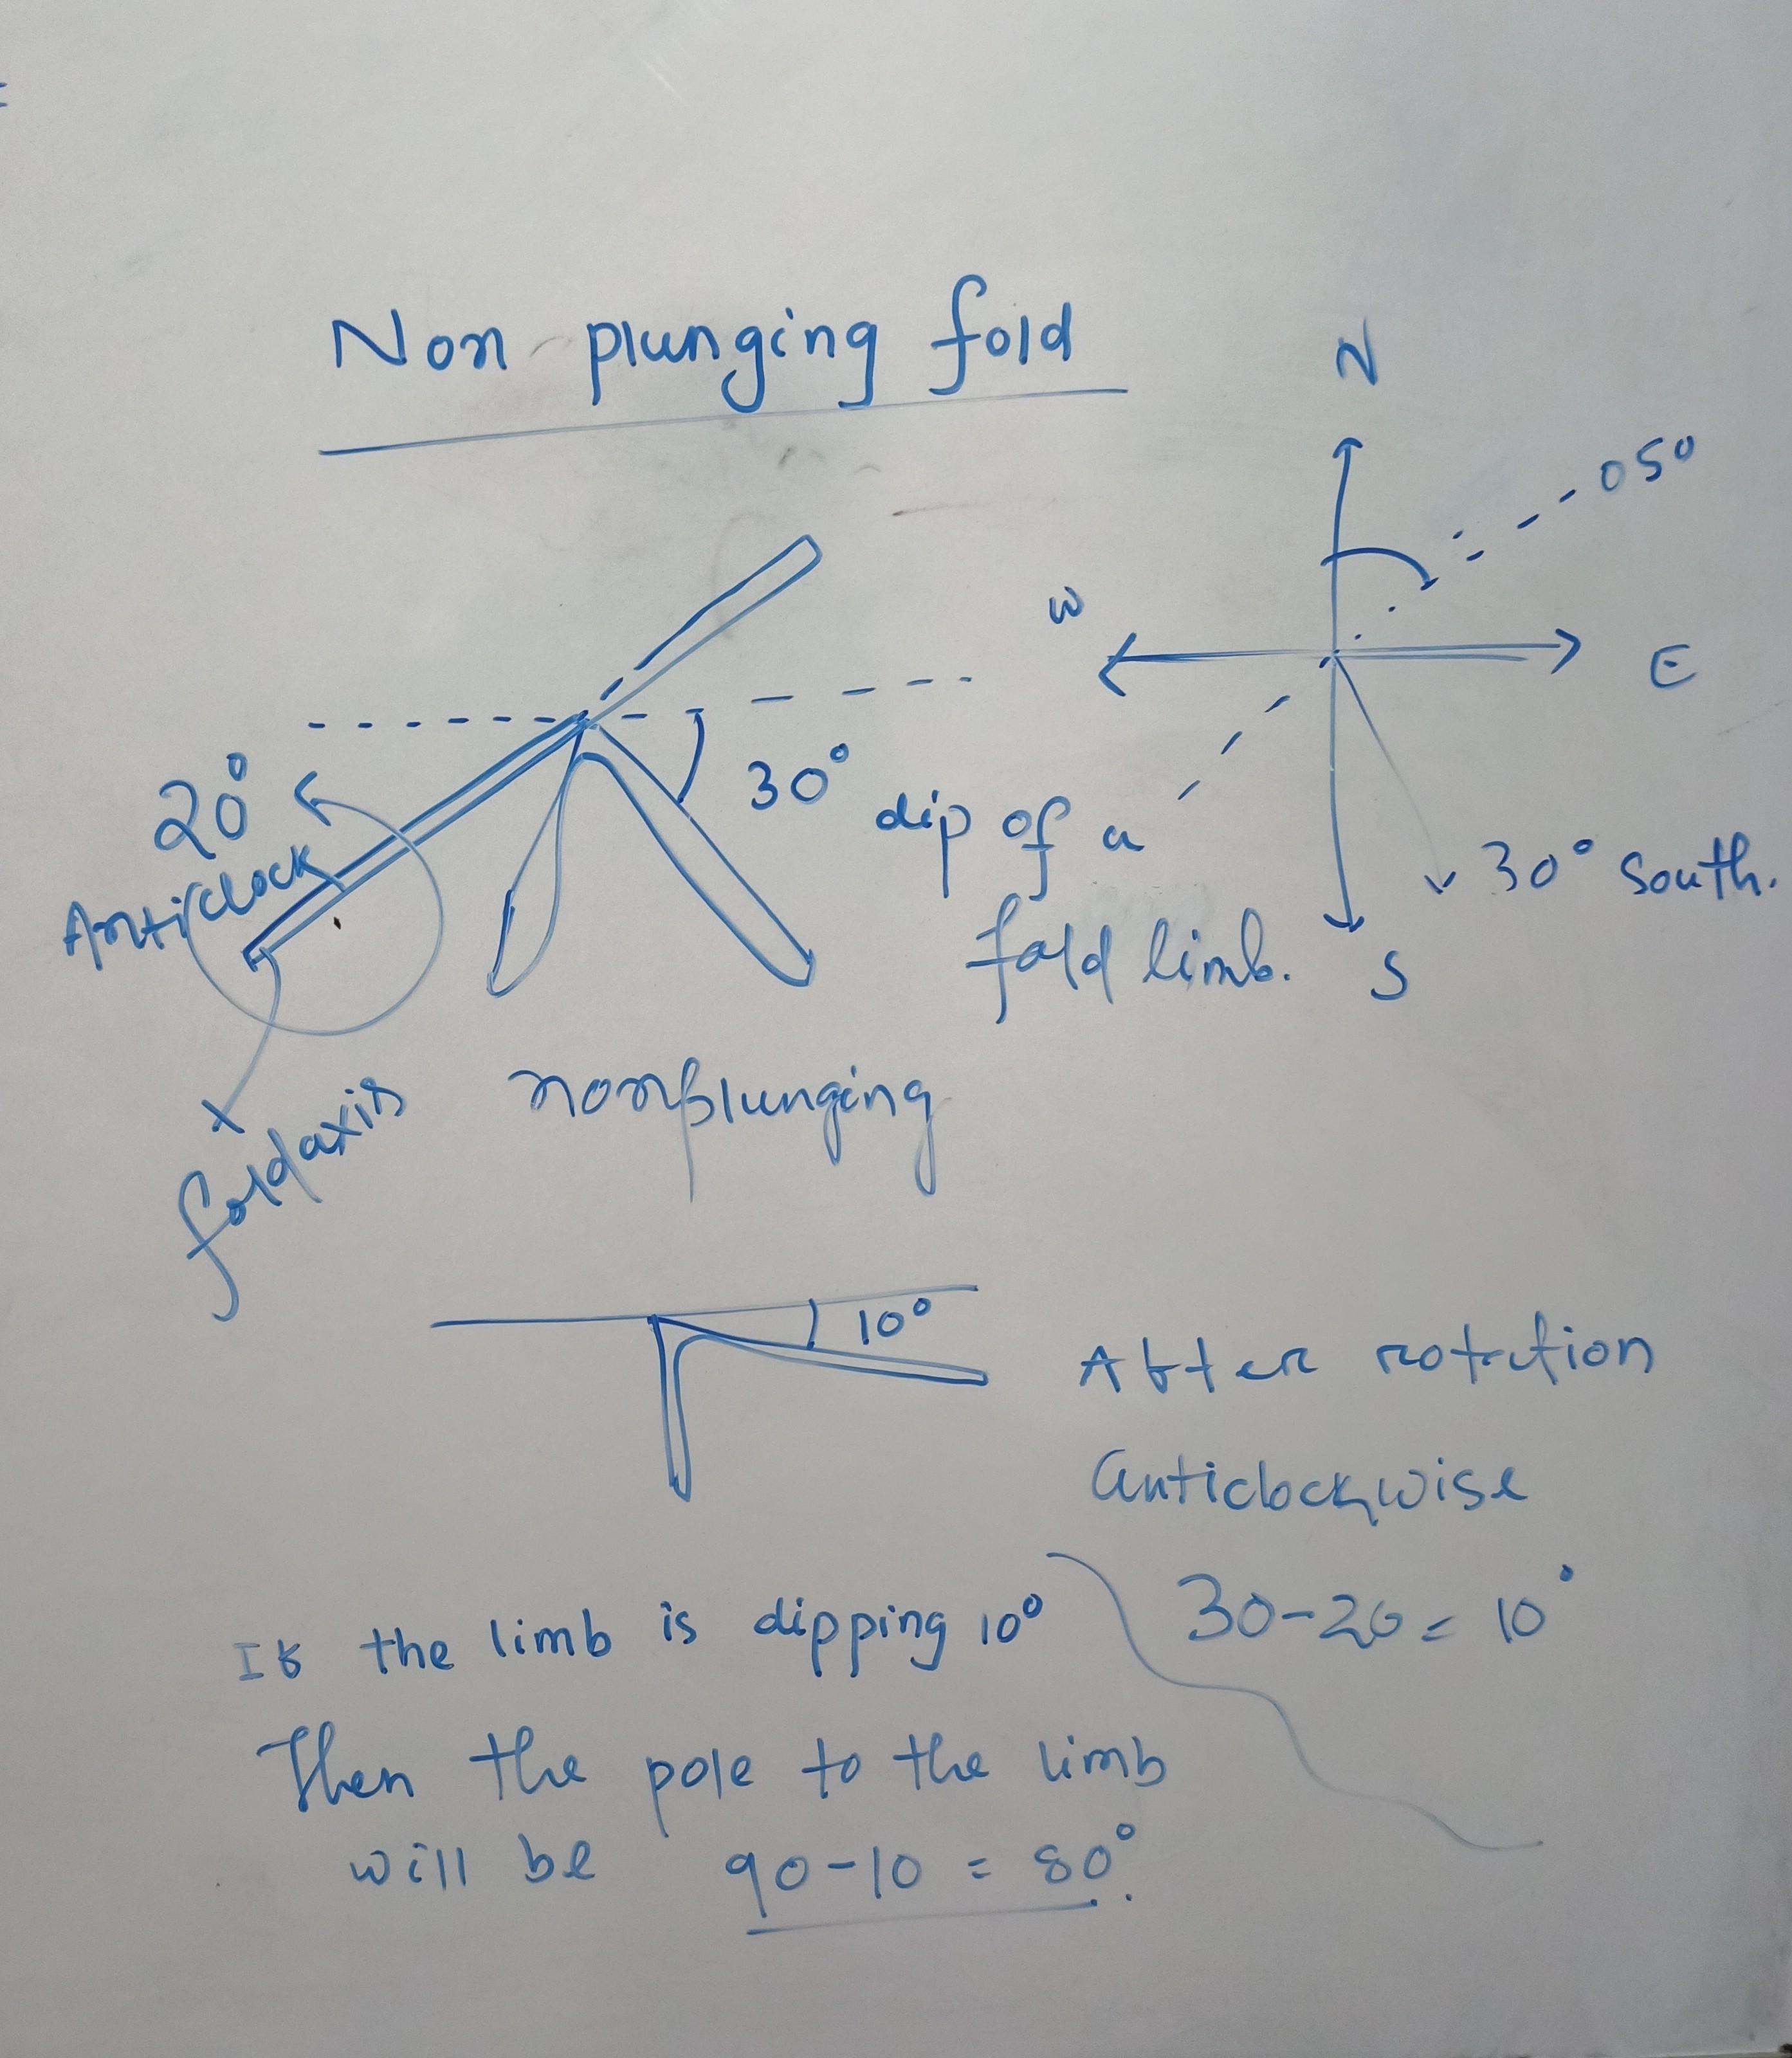 Non plunging fold
N
050
W
E
20°
Anticlock
30°
dip of a
fold limb.
30° South.
S
foldaxis
nonplunging
10°
After rotation
anticlockwise
30-20 = 10°
If the limb is dipping 10°
Then the pole to the limb
will be 90-10 = 80°.